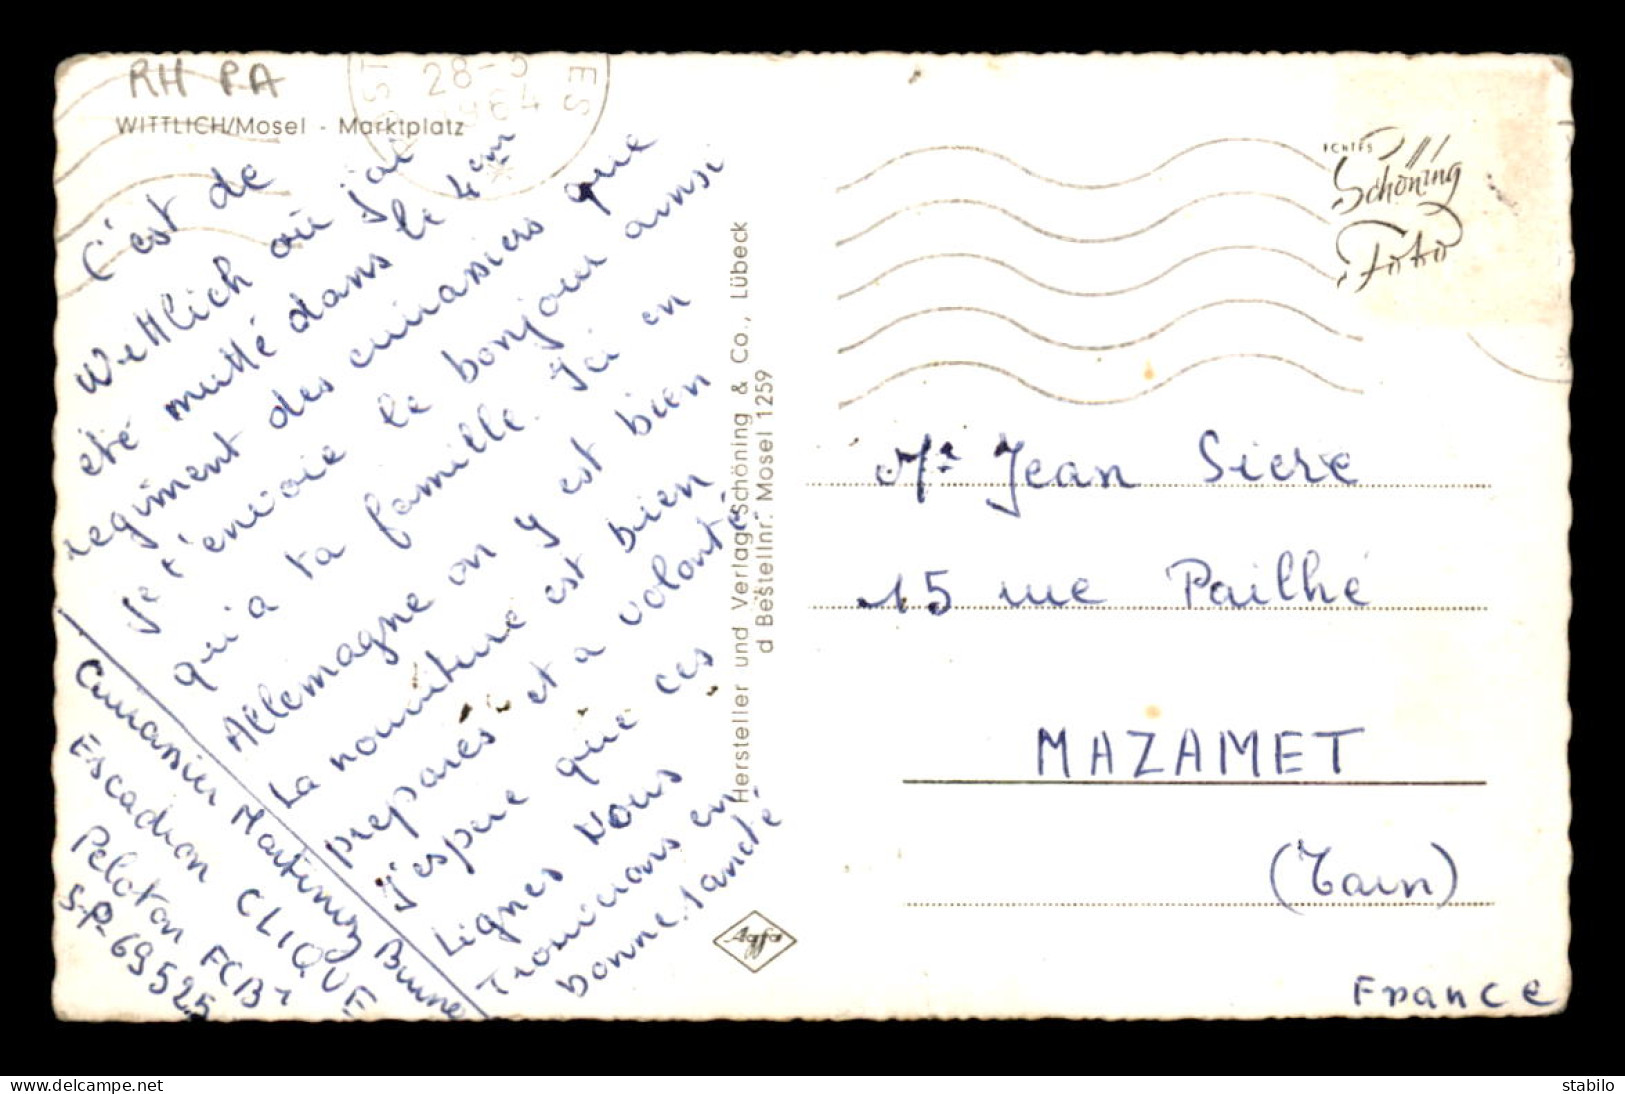 RH PA
WITTLICH/Mosel - Marktplatz
28-5
1964
C'est de
Wettlich où j'ai
été mutté dans le 4em
regiment des cuirassiers que
Je t'envoie le bonjour ainsi
qui a ta famille. Ici en
Allemagne on y est bien
La nourriture est bien
preparés et a volonté
j'espere que ces
Lignes Vous
Trouverons en
bonne santé
Cuirassier Martinez Bruno
Escadron CLIQUE
Peloton FCB1
S.P. 69525
Hersteller und Verlag Schöning & Co., Lübeck
d Beștellnr. Mosel 1259
ECHTES
Schöning
Foto
Mr Jean Siere
15 rue Pailhé
MAZAMET
(Tarn)
France
Agfa
delcampe.net
stabilo